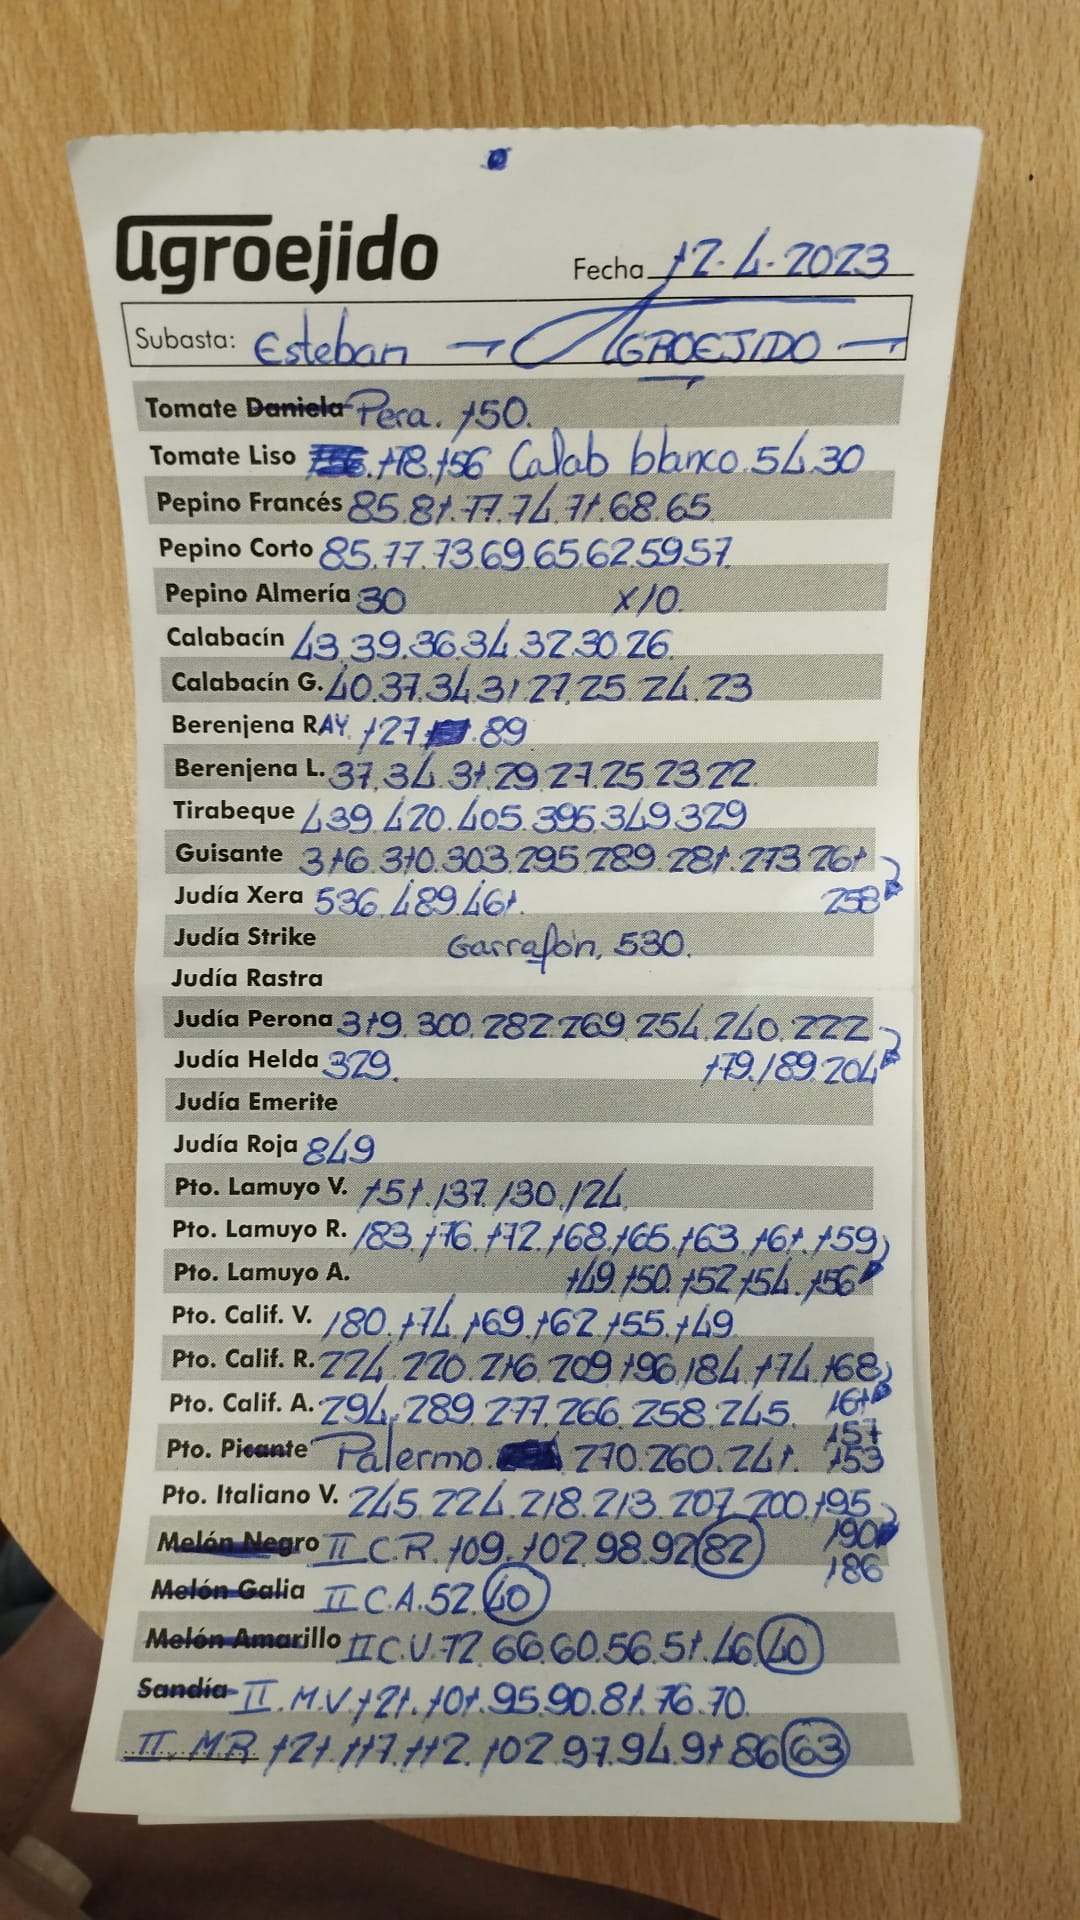 agroejido
Fecha 12.4.2023
Subasta: Esteban → AGROEJIDO
Tomate Daniela Pera. 150.
Tomate Liso .178.156 Calab blanco.54.30
Pepino Francés 85.81.77.74.71.68.65
Pepino Corto 85.77.73.69.65.62.59.57.
Pepino Almería 30 X10.
Calabacín 43.39.36.34.32.30.26.
Calabacín G. 40.37.34.31.27.25.24.23
Berenjena RAY. 127 .89
Berenjena L. 37.34.31.29.27.25.23.22.
Tirabeque 439.420.405.395.349.329
Guisante 316.310.303.295.289.281.273.261
Judía Xera 536.489.461. 258
Judía Strike Garrafón, 530.
Judía Rastra
Judía Perona 319.300.282.269.254.240.222
Judía Helda 329. 179.189.204
Judía Emerite
Judía Roja 849
Pto. Lamuyo V. 151.137.130.124
Pto. Lamuyo R. 183.176.172.168.165.163.161.159
Pto. Lamuyo A. 149.150.152.154.156
Pto. Calif. V. 180.174.169.162.155.149
Pto. Calif. R. 224.220.216.209.196.184.174.168
Pto. Calif. A. 294.289.277.266.258.245. 161
157
Pto. Picante Palermo. 270.260.241. 153
Pto. Italiano V. 245.224.218.213.207.200.195
Melón Negro II C.R. 109.102.98.92 82 190
186
Melón Galia II C.A. 52. 40
Melón Amarillo II C.V. 72.66.60.56.51.46. 40
Sandía II. M.V. 121.101.95.90.81.76.70.
II. MR 121.117.112.102.97.94.91.86 63